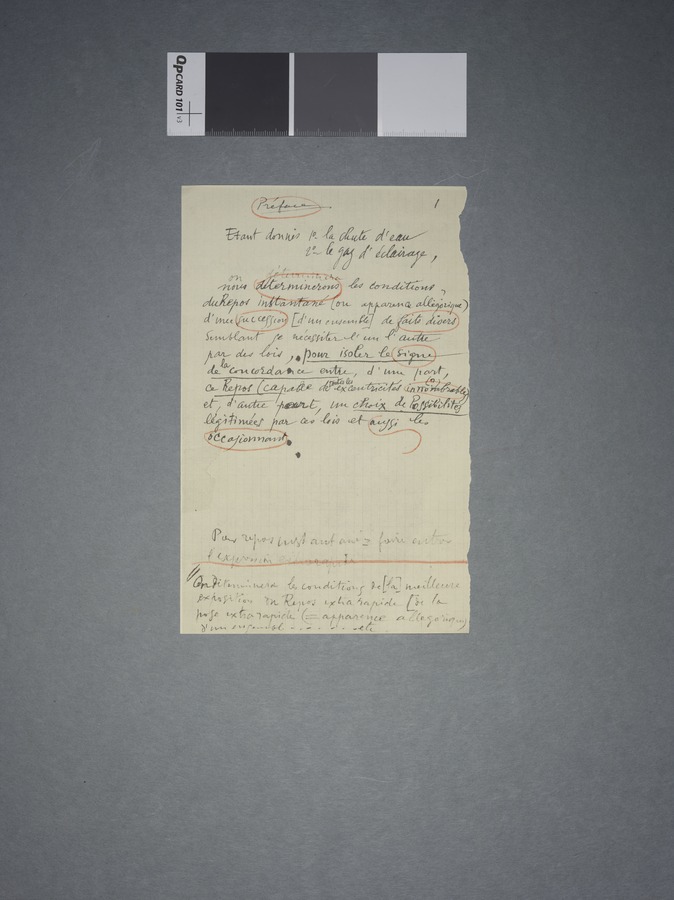 QPCARD 101 v3
Préface 1
Etant donnés 1° la chute d'eau
2° le gaz d'éclairage,
on déterminera
nous déterminerons les conditions,
du Repos instantané (ou apparence allégorique)
d'une succession [d'un ensemble] de faits divers
semblant se nécessiter l'un l'autre
par des lois, pour isoler le signe
de la concordance entre, d'une part,
ce Repos (capable de toutes les excentricités innombrables)
et, d'autre part, un choix de Possibilités
légitimées par ces lois et aussi les
occasionnant.
Pour repos instantané = faire entrer
l'expression
On déterminera les conditions de [la] meilleure
exposition du Repos extra rapide [de la
pose extra rapide (= apparence allégorique)
d'un ensemble - - - - - etc.